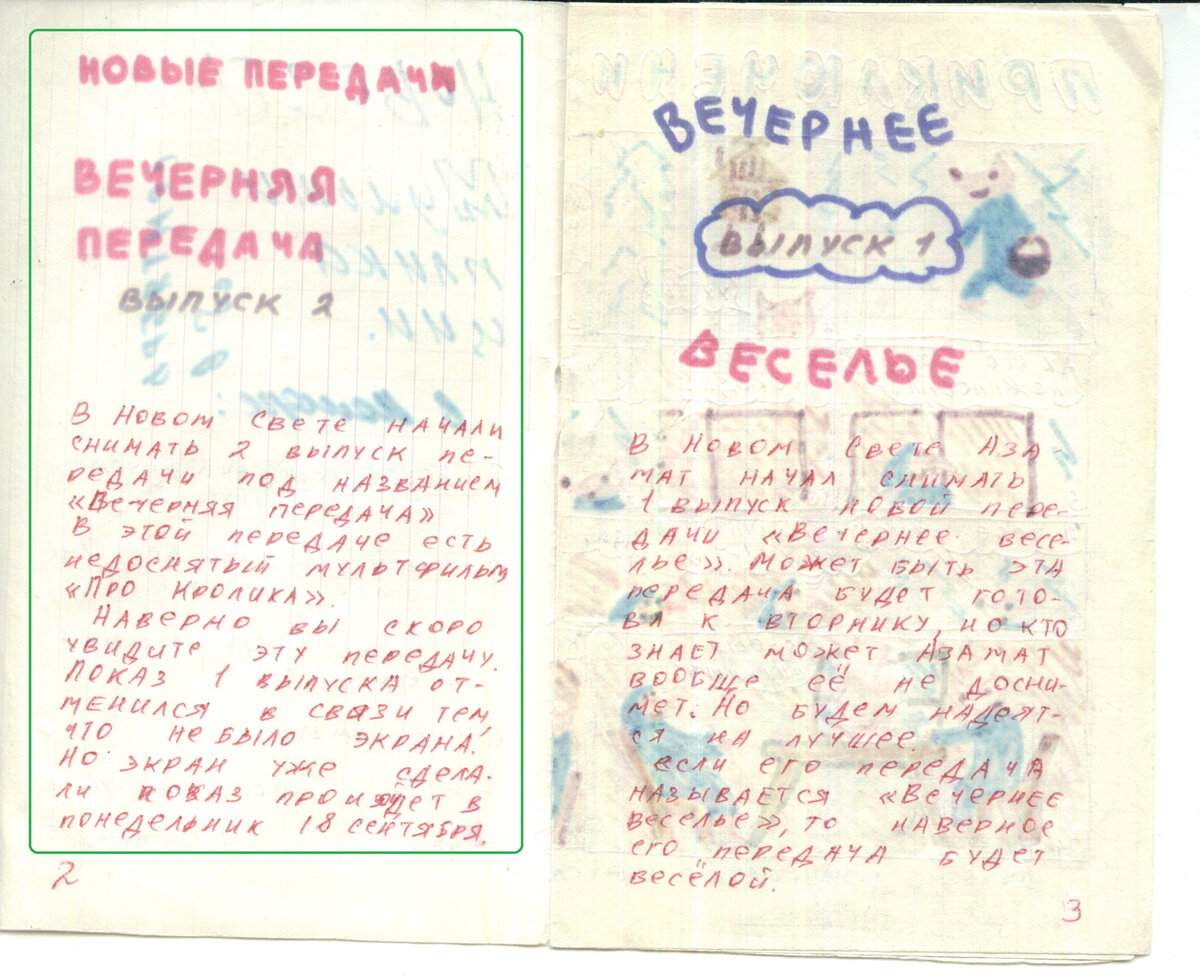 НОВЫЕ ПЕРЕДАЧИ
ВЕЧЕРНЯЯ
ПЕРЕДАЧА
ВЫПУСК 2
В Новом Свете начали
снимать 2 выпуск пе-
редачи под названием
«Вечерняя передача»
В этой передаче есть
недоснятый мультфильм
«Про Кролика».
Наверно вы скоро
увидите эту передачу.
Показ 1 выпуска от-
менился в связи тем,
что не было экрана.
Но экран уже сдела-
ли показ произойдет в
понедельник 18 сентября.
2
ВЕЧЕРНЕЕ
ВЫПУСК 1
ВЕСЕЛЬЕ
В Новом Свете Аза-
мат начал снимать
1 выпуск новой пере-
дачи «Вечернее весе-
лье». Может быть эта
передача будет гото-
ва к вторнику, но кто
знает может Азамат
вообще её не досни-
мет. Но будем надеят-
ся на лучшее.
если его передача
называется «Вечернее
веселье», то наверное
его передача будет
весёлой.
3